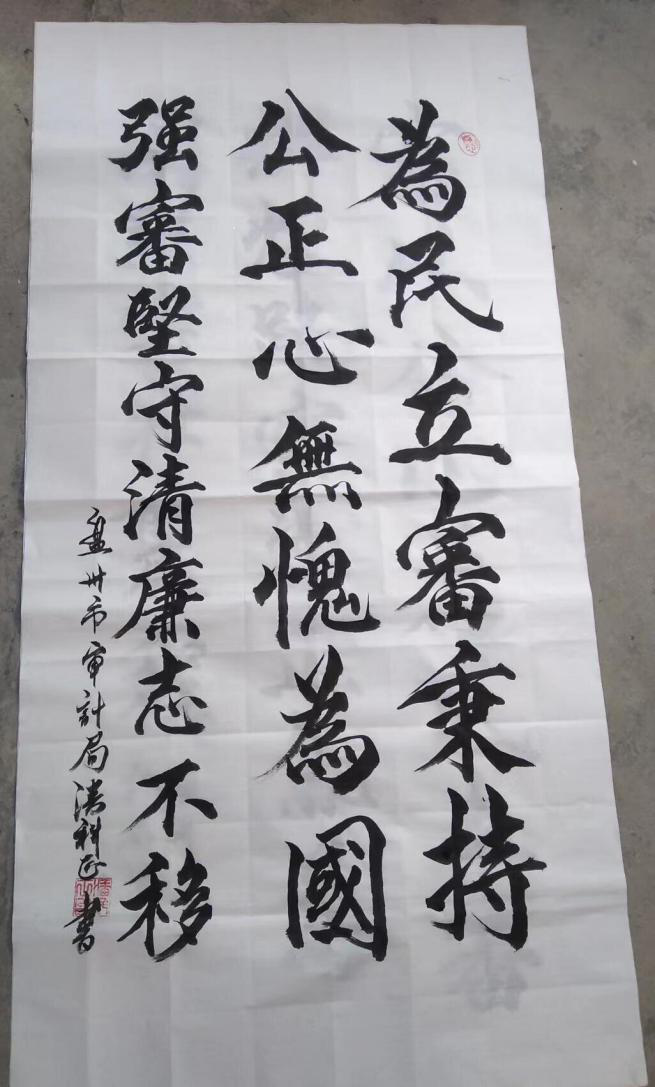 為民立審秉持
公正心無愧為國
强審堅守清廉志不移
盘州市审計局潘科正書